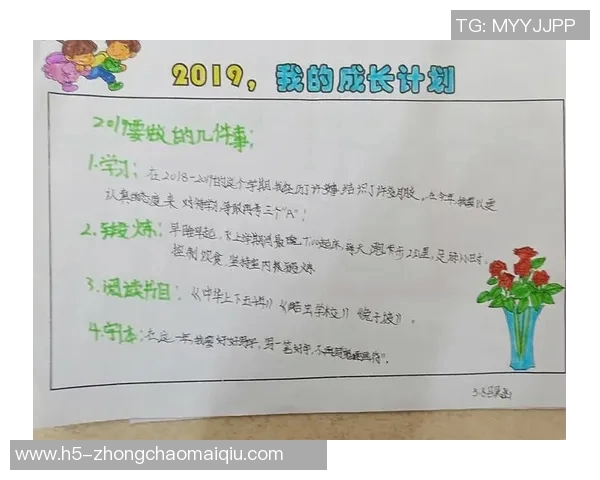 TG: MYYJJPP
2019，我的成长计划
2019要做的几件事：
1.学习：在2018-2019的这个学期,我经历了许多事,结识了许多朋友。在今年,我要以更
认真的态度来对待学习,争取再考三个"A"!
2.锻炼：早睡早起，
控制饮食,坚持室内
3.阅读书目：《中华上下五千年》《昆虫学校》
4.字体：在这一年,我要好好练字,写一笔好字,不再
www.h5-zhongchaomaiqiu.com